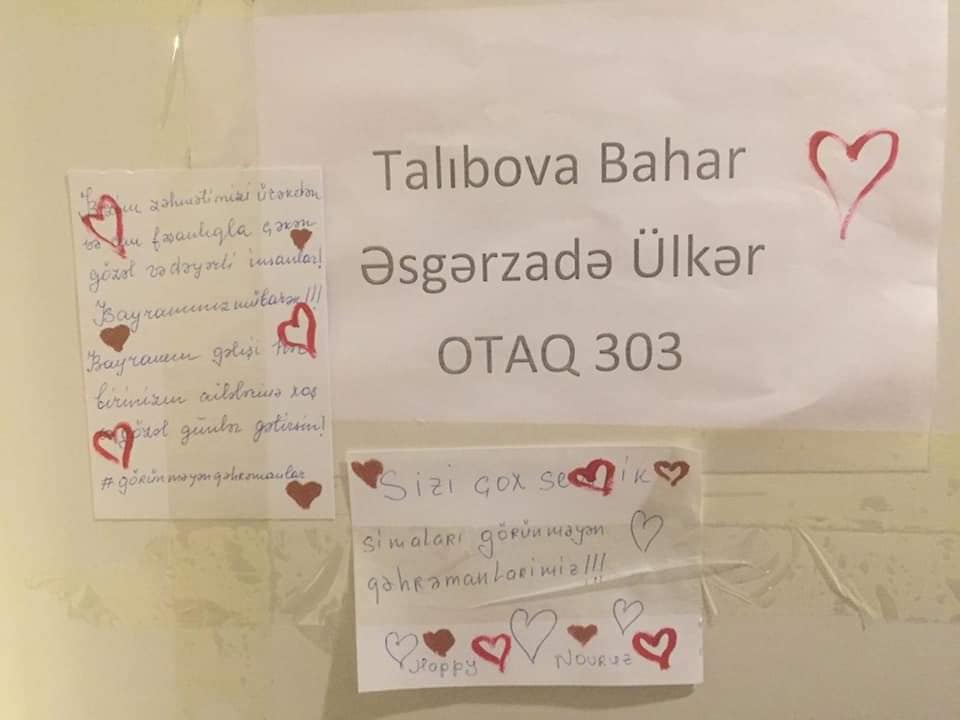 Talıbova Bahar
Əsgərzadə Ülkər
OTAQ 303
Bizim zəhmətimizi ürəkdən
və can fəşanlıqla çəkən
gözəl və dəyərli insanlar!
Bayramınız mübarək!!!
Bayramın gəlişi hər
birinizin ailələrinə xoş
gözəl günlər gətirsin!
#görünməyənqəhrəmanlar
Sizi çox sevirik
simaları görünməyən
qəhrəmanlarımız!!!
Happy Novruz